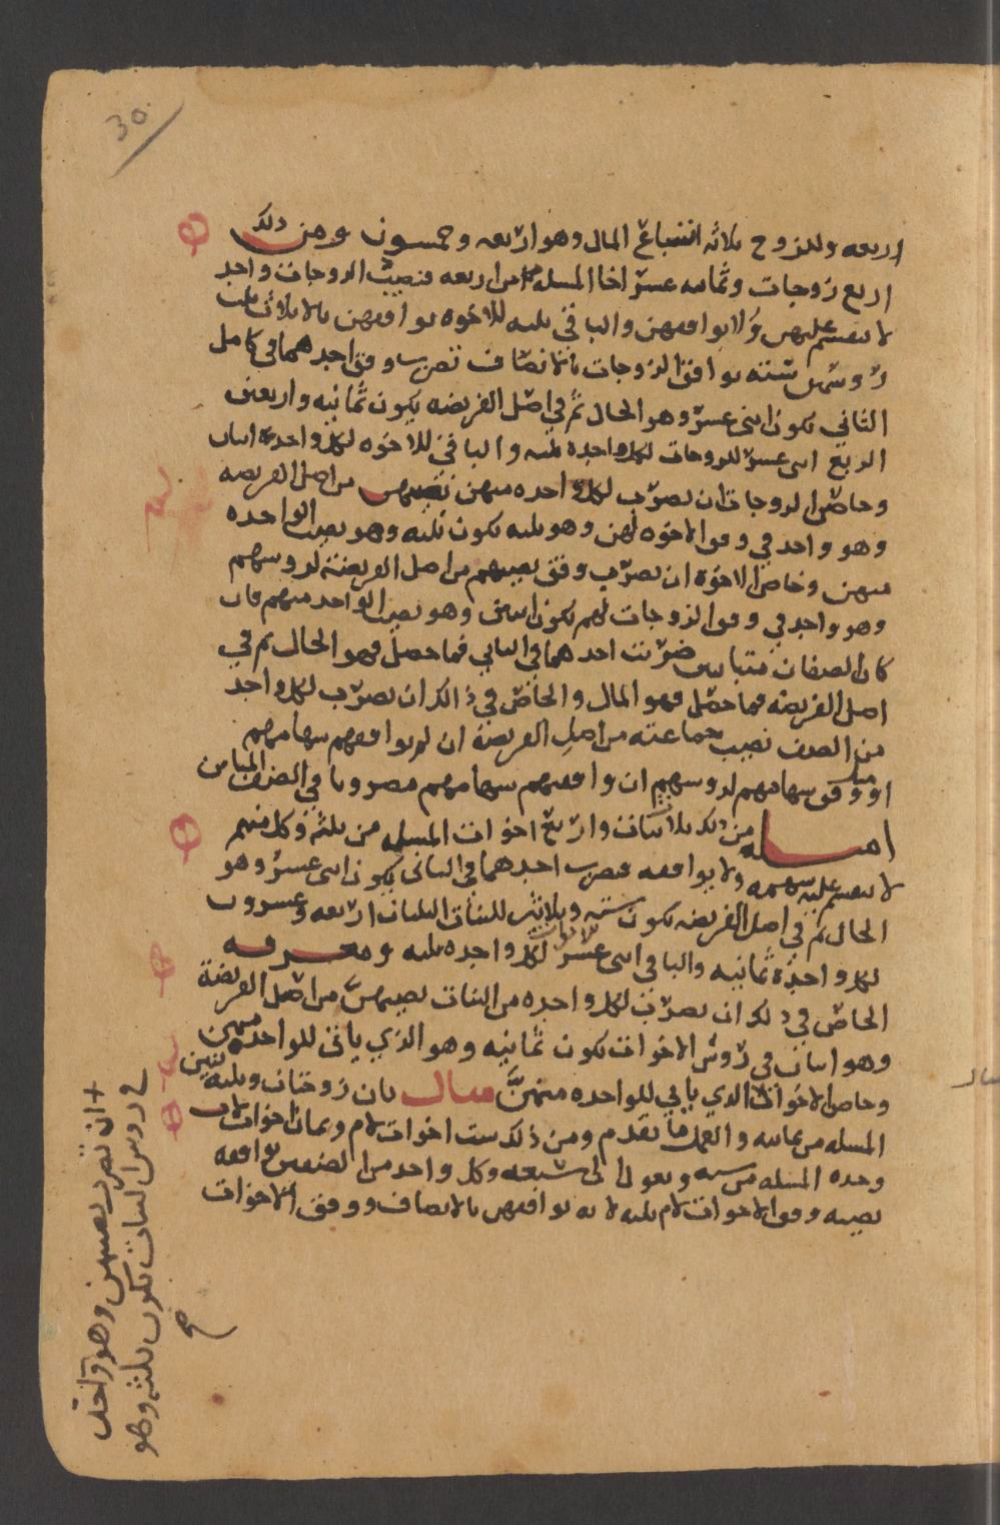 30
اربعه وللزوج ثلاثه اتساع المال وهو اربعه وخمسون ومن ذلك
اربع زوجات وثمانيه عشر اخا المسله من اربعه فنصيب الزوجات واحد
لا ينقسم عليهن ولا يوافقهن والباقي ثلثه للاخوه يوافقهن بالاثلاث ثلث
رؤوسهن سته يوافق الزوجات بالانصاف تضرب وفق احدهما في كامل
الثاني يكون اثنى عشر وهو الحال ثم في اصل الفريضه يكون ثمانيه واربعين
الربع اثنى عشر للزوجات لكل واحده ثلثه والباقي للاخوه لكل واحد اثنان
وحاصر الزوجات ان تضرب لكل واحده منهن نصيبهن من اصل الفريضه
وهو واحد في وفق الاخوه لهن وهو ثلثه يكون ثلثه وهو نصيب الواحده
منهن وحاصر الاخوة ان تضرب وفق نصيبهم من اصل الفريضة لروسهم
وهو واحد في وفق الزوجات لهم يكون اثنين وهو نصيب الواحد منهم فان
كان الصنفان متباينين ضربت احدهما في الثاني فما حصل فهو الحال ثم في
اصل الفريضه فما حصل فهو المال والحاصر في ذلك ان تضرب لكل واحد
من الصنف نصيب جماعته من اصل الفريضة ان لم يوافقهم سهامهم
او وفق سهامهم لروسهم ان وافقتهم سهامهم مضروبا في الصنف المباين
امثله من ذلك ثلاث بنات واربع اخوات المسله من ثلثه وكل منهم
لا ينقسم عليه سهمه ولا يوافقه فتضرب احدهما في الثاني يكون اثنى عشر وهو
الحال ثم في اصل الفريضه يكون سته وثلاثين للبنات الثلثان اربعه وعشرون
لكل واحدة ثمانيه والباقي اثنى عشر للاخوات لكل واحده ثلثه ومعرفه
الحاصر في ذلك ان تضرب لكل واحده من البنات نصيبهن من اصل الفريضة
وهو اثنان في رؤس الاخوات يكون ثمانيه وهو الذي ياتي للواحده منهن
وحاصر الاخوات الذي ياتي للواحده منهن مثال ثان زوجتان وثلثه بنين
المسله من ثمانيه والعمل ما تقدم ومن ذلك ست اخوات لام وثمان اخوات لاب
وجده المسله من سته وتعول الى سبعه وكل واحد من الصنفين يوافقه
نصيبه ووفق الاخوات لام ثلثه لانه يوافقهن بالانصاف ووفق الاخوات
+ ان تضرب نصيبهن وهو واحد
في روس البنات يكون ثلثه وهو
صح